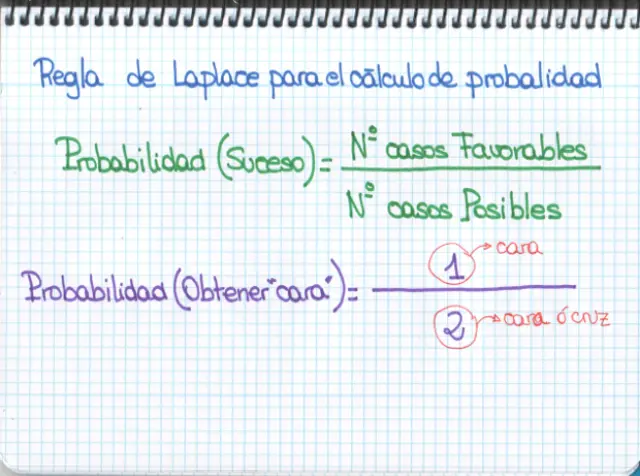 Regla de Laplace para el cálculo de probalidad
Probabilidad (Suceso) = Nº casos Favorables
Nº casos Posibles
1 → cara
Probabilidad (Obtener "cara") =
2 → cara ó cruz